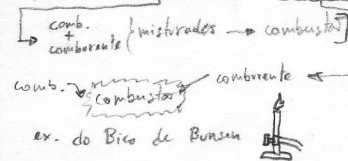 comb.
+
comburente } misturados → combustão
comb. combustão comburente
ex. do Bico de Bunsen